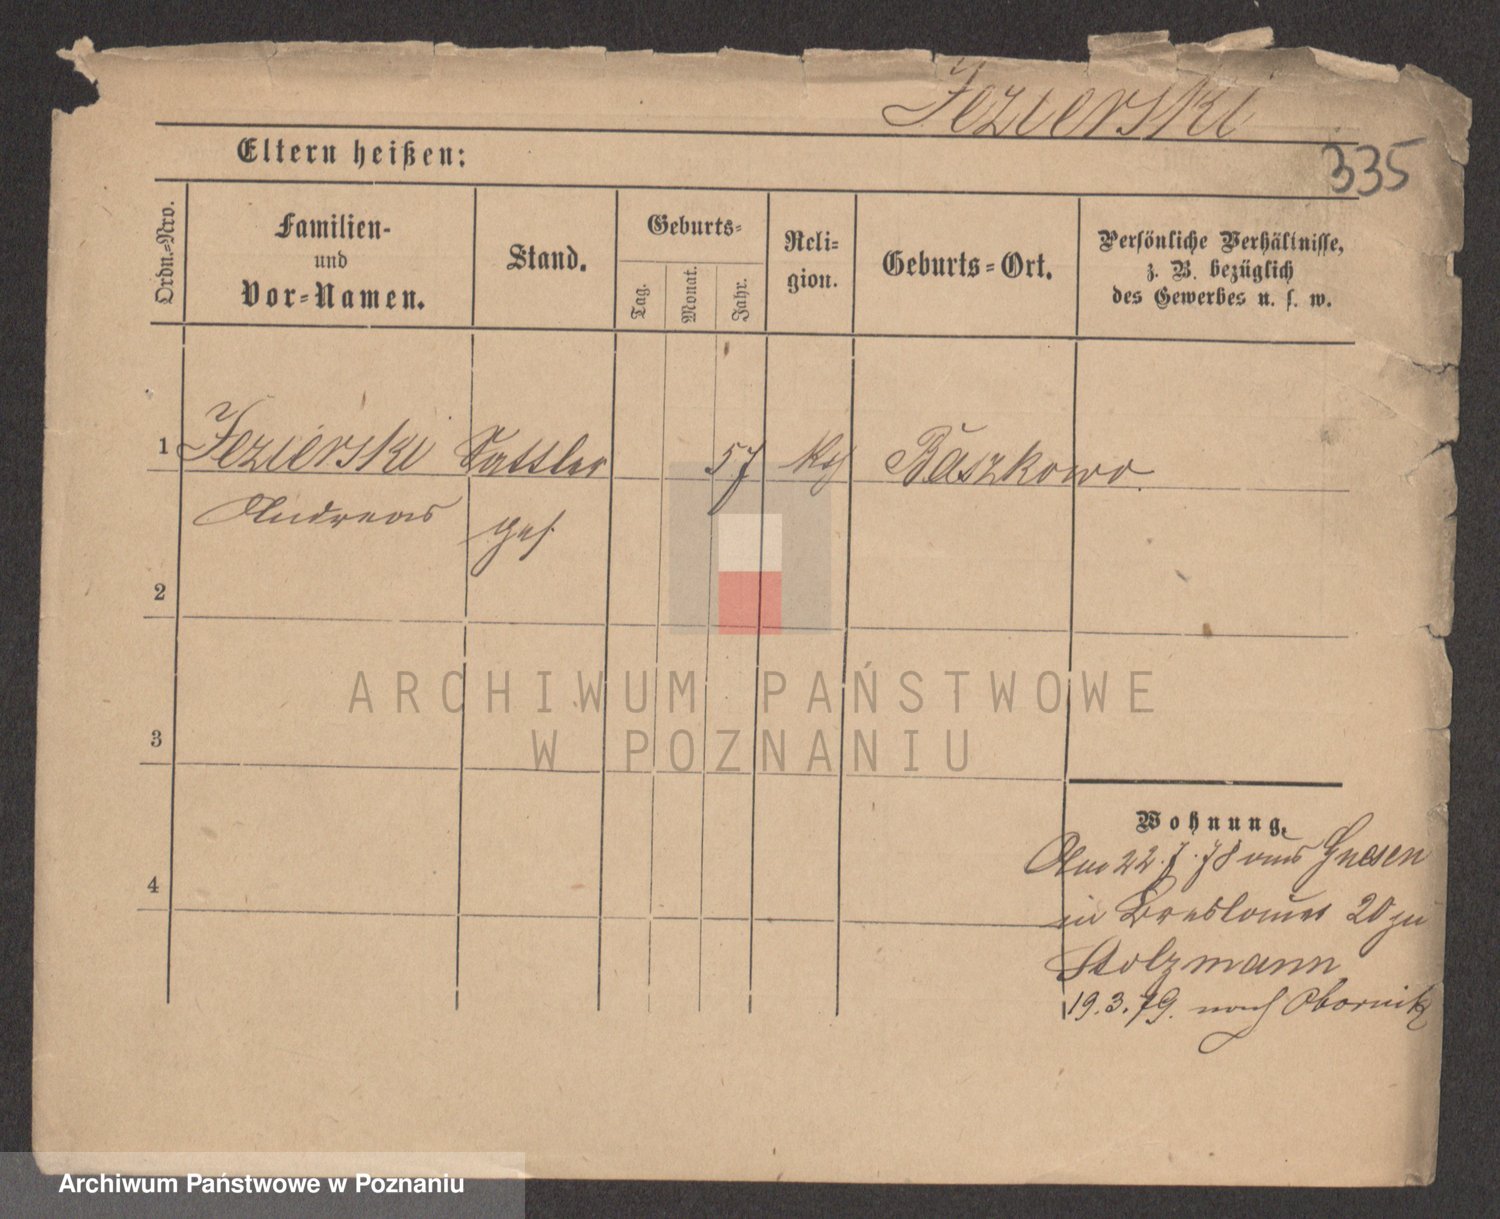 Jezierski
335
Eltern heißen:
Ordn.=Nro.
Familien-
und
Vor=Namen.
Stand.
Geburts=
Tag.
Monat.
Jahr.
Reli=
gion.
Geburts=Ort.
Persönliche Verhältnisse,
z. B. bezüglich
des Gewerbes u. s. w.
1 Jezierski Sattler 57 Baszkowo
Andreas ges.
2
3
4
ARCHIWUM PAŃSTWOWE
W POZNANIU
Wohnung.
Am 22.7.78 aus Gnesen
in Breslauer 20 zu
Stolzmann
19.3.79. nach Obornik
Archiwum Państwowe w Poznaniu